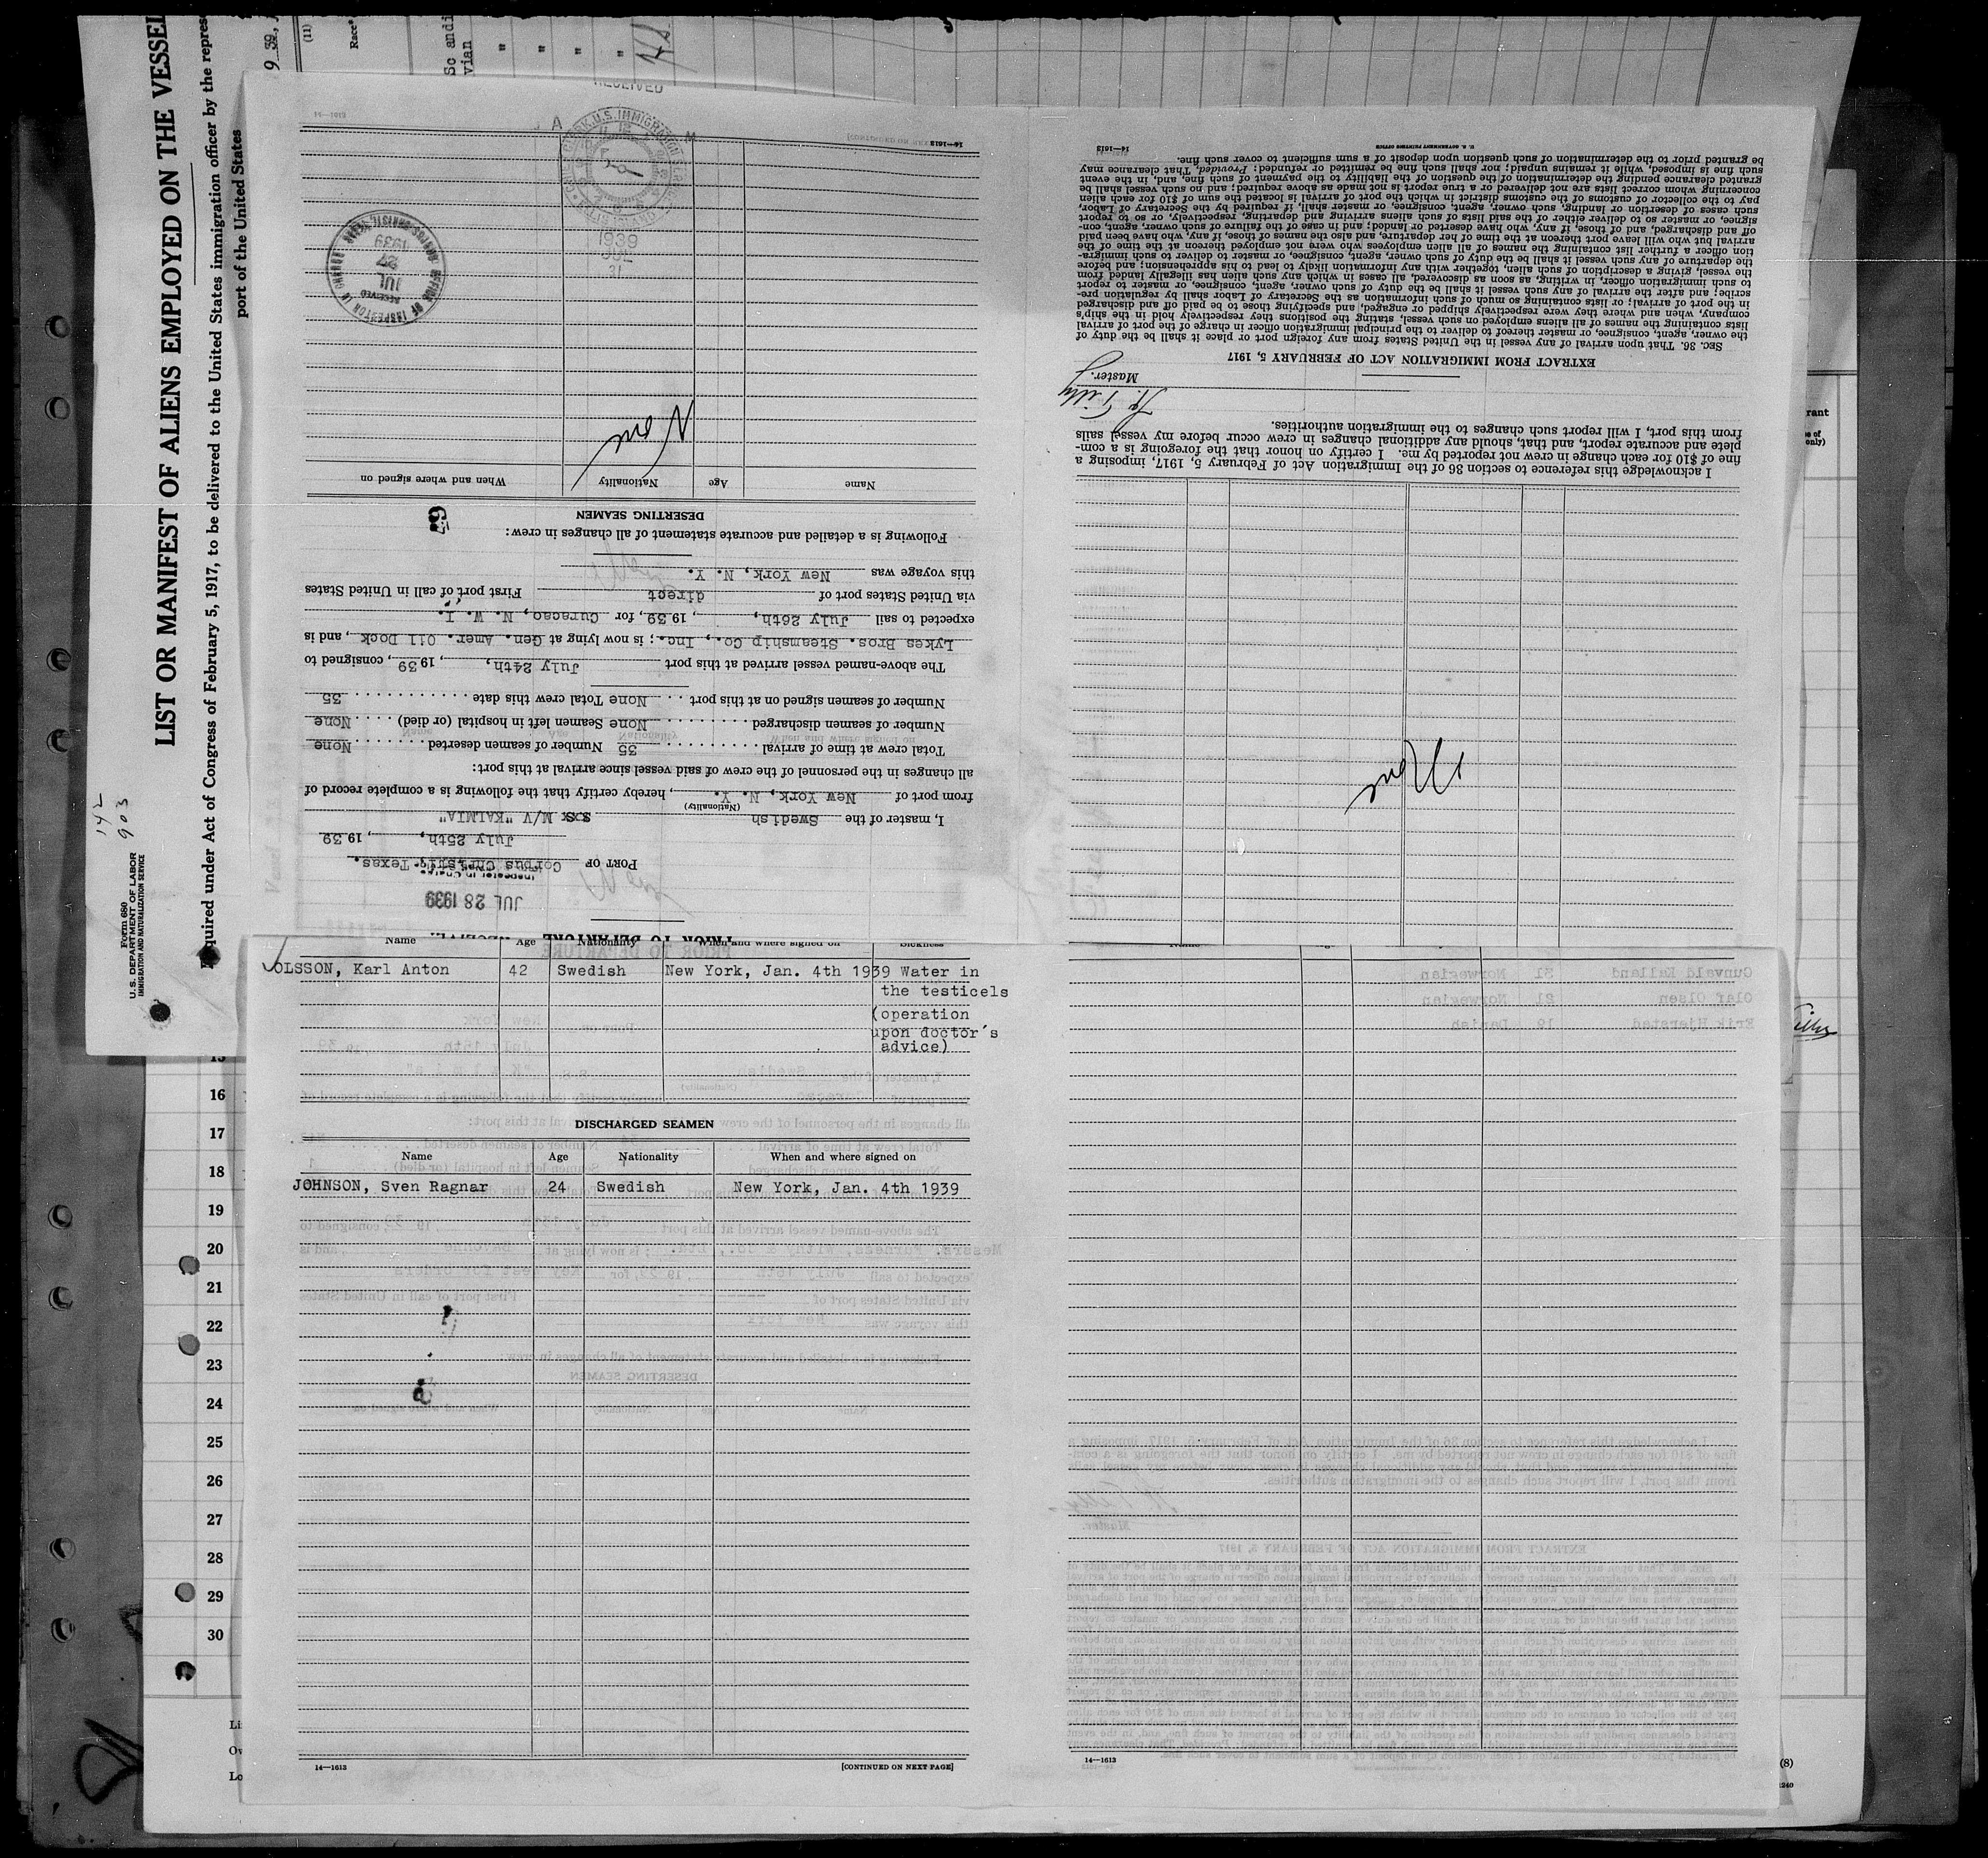 LIST OR MANIFEST OF ALIENS EMPLOYED ON THE VESSEL
quired under Act of Congress of February 5, 1917, to be delivered to the United States immigration officer by the repres
port of the United States
Form 680
U. S. DEPARTMENT OF LABOR
IMMIGRATION AND NATURALIZATION SERVICE
142
903
9 39,
(11)
Race*
Sc andi
vian
" " " "
JUL 28 1939
Inspector in Charge
PORT OF Corpus Christi, Texas.
July 25th, , 19 39
I, master of the Swedish M/V "KALMIA"
(Nationality)
from port of New York, N. Y. , hereby certify that the following is a complete record of
all changes in the personnel of the crew of said vessel since arrival at this port:
Total crew at time of arrival 35 Number of seamen deserted None
Number of seamen discharged None Seamen left in hospital (or died) None
Number of seamen signed on at this port None Total crew this date 35
The above-named vessel arrived at this port July 24th, , 19 39, consigned to
Lykes Bros. Steamship Co., Inc.; is now lying at Gen. Amer. Oil Dock, and is
expected to sail July 26th, , 19 39, for Curacao, N. W. I.
via United States port of direct First port of call in United States
this voyage was New York, N. Y.
Following is a detailed and accurate statement of all changes in crew:
DESERTING SEAMEN
Name Age Nationality When and where signed on
None
OFFICE OF INSPECTOR IN CHARGE
RECEIVED
JUL
27
1939
RECEIVED
1939
JUL
31
14—1613
None
I acknowledge this reference to section 36 of the Immigration Act of February 5, 1917, imposing a
fine of $10 for each change in crew not reported by me. I certify on honor that the foregoing is a com-
plete and accurate report, and that, should any additional changes in crew occur before my vessel sails
from this port, I will report such changes to the immigration authorities.
Master.
EXTRACT FROM IMMIGRATION ACT OF FEBRUARY 5, 1917
SEC. 36. That upon arrival of any vessel in the United States from any foreign port or place it shall be the duty of
the owner, agent, consignee, or master thereof to deliver to the principal immigration officer in charge of the port of arrival
lists containing the names of all aliens employed on such vessel, stating the positions they respectively hold in the ship's
company, when and where they were respectively shipped or engaged, and specifying those to be paid off and discharged
in the port of arrival; or lists containing so much of such information as the Secretary of Labor shall by regulation pre-
scribe; and after the arrival of any such vessel it shall be the duty of such owner, agent, consignee, or master to report
to such immigration officer, in writing, as soon as discovered, all cases in which any such alien has illegally landed from
the vessel, giving a description of such alien, together with any information likely to lead to his apprehension; and before
the departure of any such vessel it shall be the duty of such owner, agent, consignee, or master to deliver to such immigra-
tion officer a further list containing the names of all alien employees who were not employed thereon at the time of the
arrival but who will leave port thereon at the time of her departure, and also the names of those, if any, who have been paid
off and discharged, and of those, if any, who have deserted or landed; and in case of the failure of such owner, agent, con-
signee, or master so to deliver either of the said lists of such aliens arriving and departing, respectively, or so to report
such cases of desertion or landing, such owner, agent, consignee, or master shall, if required by the Secretary of Labor,
pay to the collector of customs of the customs district in which the port of arrival is located the sum of $10 for each alien
concerning whom correct lists are not delivered or a true report is not made as above required; and no such vessel shall be
granted clearance pending the determination of the question of the liability to the payment of such fine, and, in the event
such fine is imposed, while it remains unpaid; nor shall such fine be remitted or refunded: Provided, That clearance may
be granted prior to the determination of such question upon deposit of a sum sufficient to cover such fine.
U. S. GOVERNMENT PRINTING OFFICE
14—1613
Name Age Nationality When and where signed on Sickness
OLSSON, Karl Anton 42 Swedish New York, Jan. 4th 1939 Water in
the testicels
(operation
upon doctor's
advice)
DISCHARGED SEAMEN
Name Age Nationality When and where signed on
JOHNSON, Sven Ragnar 24 Swedish New York, Jan. 4th 1939
14—1613 [CONTINUED ON NEXT PAGE]
14—1613
16
17
18
19
20
21
22
23
24
25
26
27
28
29
30
(8)